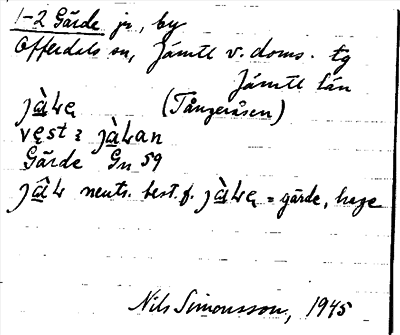 1-2 Gärde jr, by
Offerdals sn, Jämtl v. doms. tg
Jämtl län
jàłę (Tångeråsen)
vęst i jàłan
Gärde Gn 59
jàł neutr. best.f. jàłę = gärde, hage
Nils Simonsson, 1945